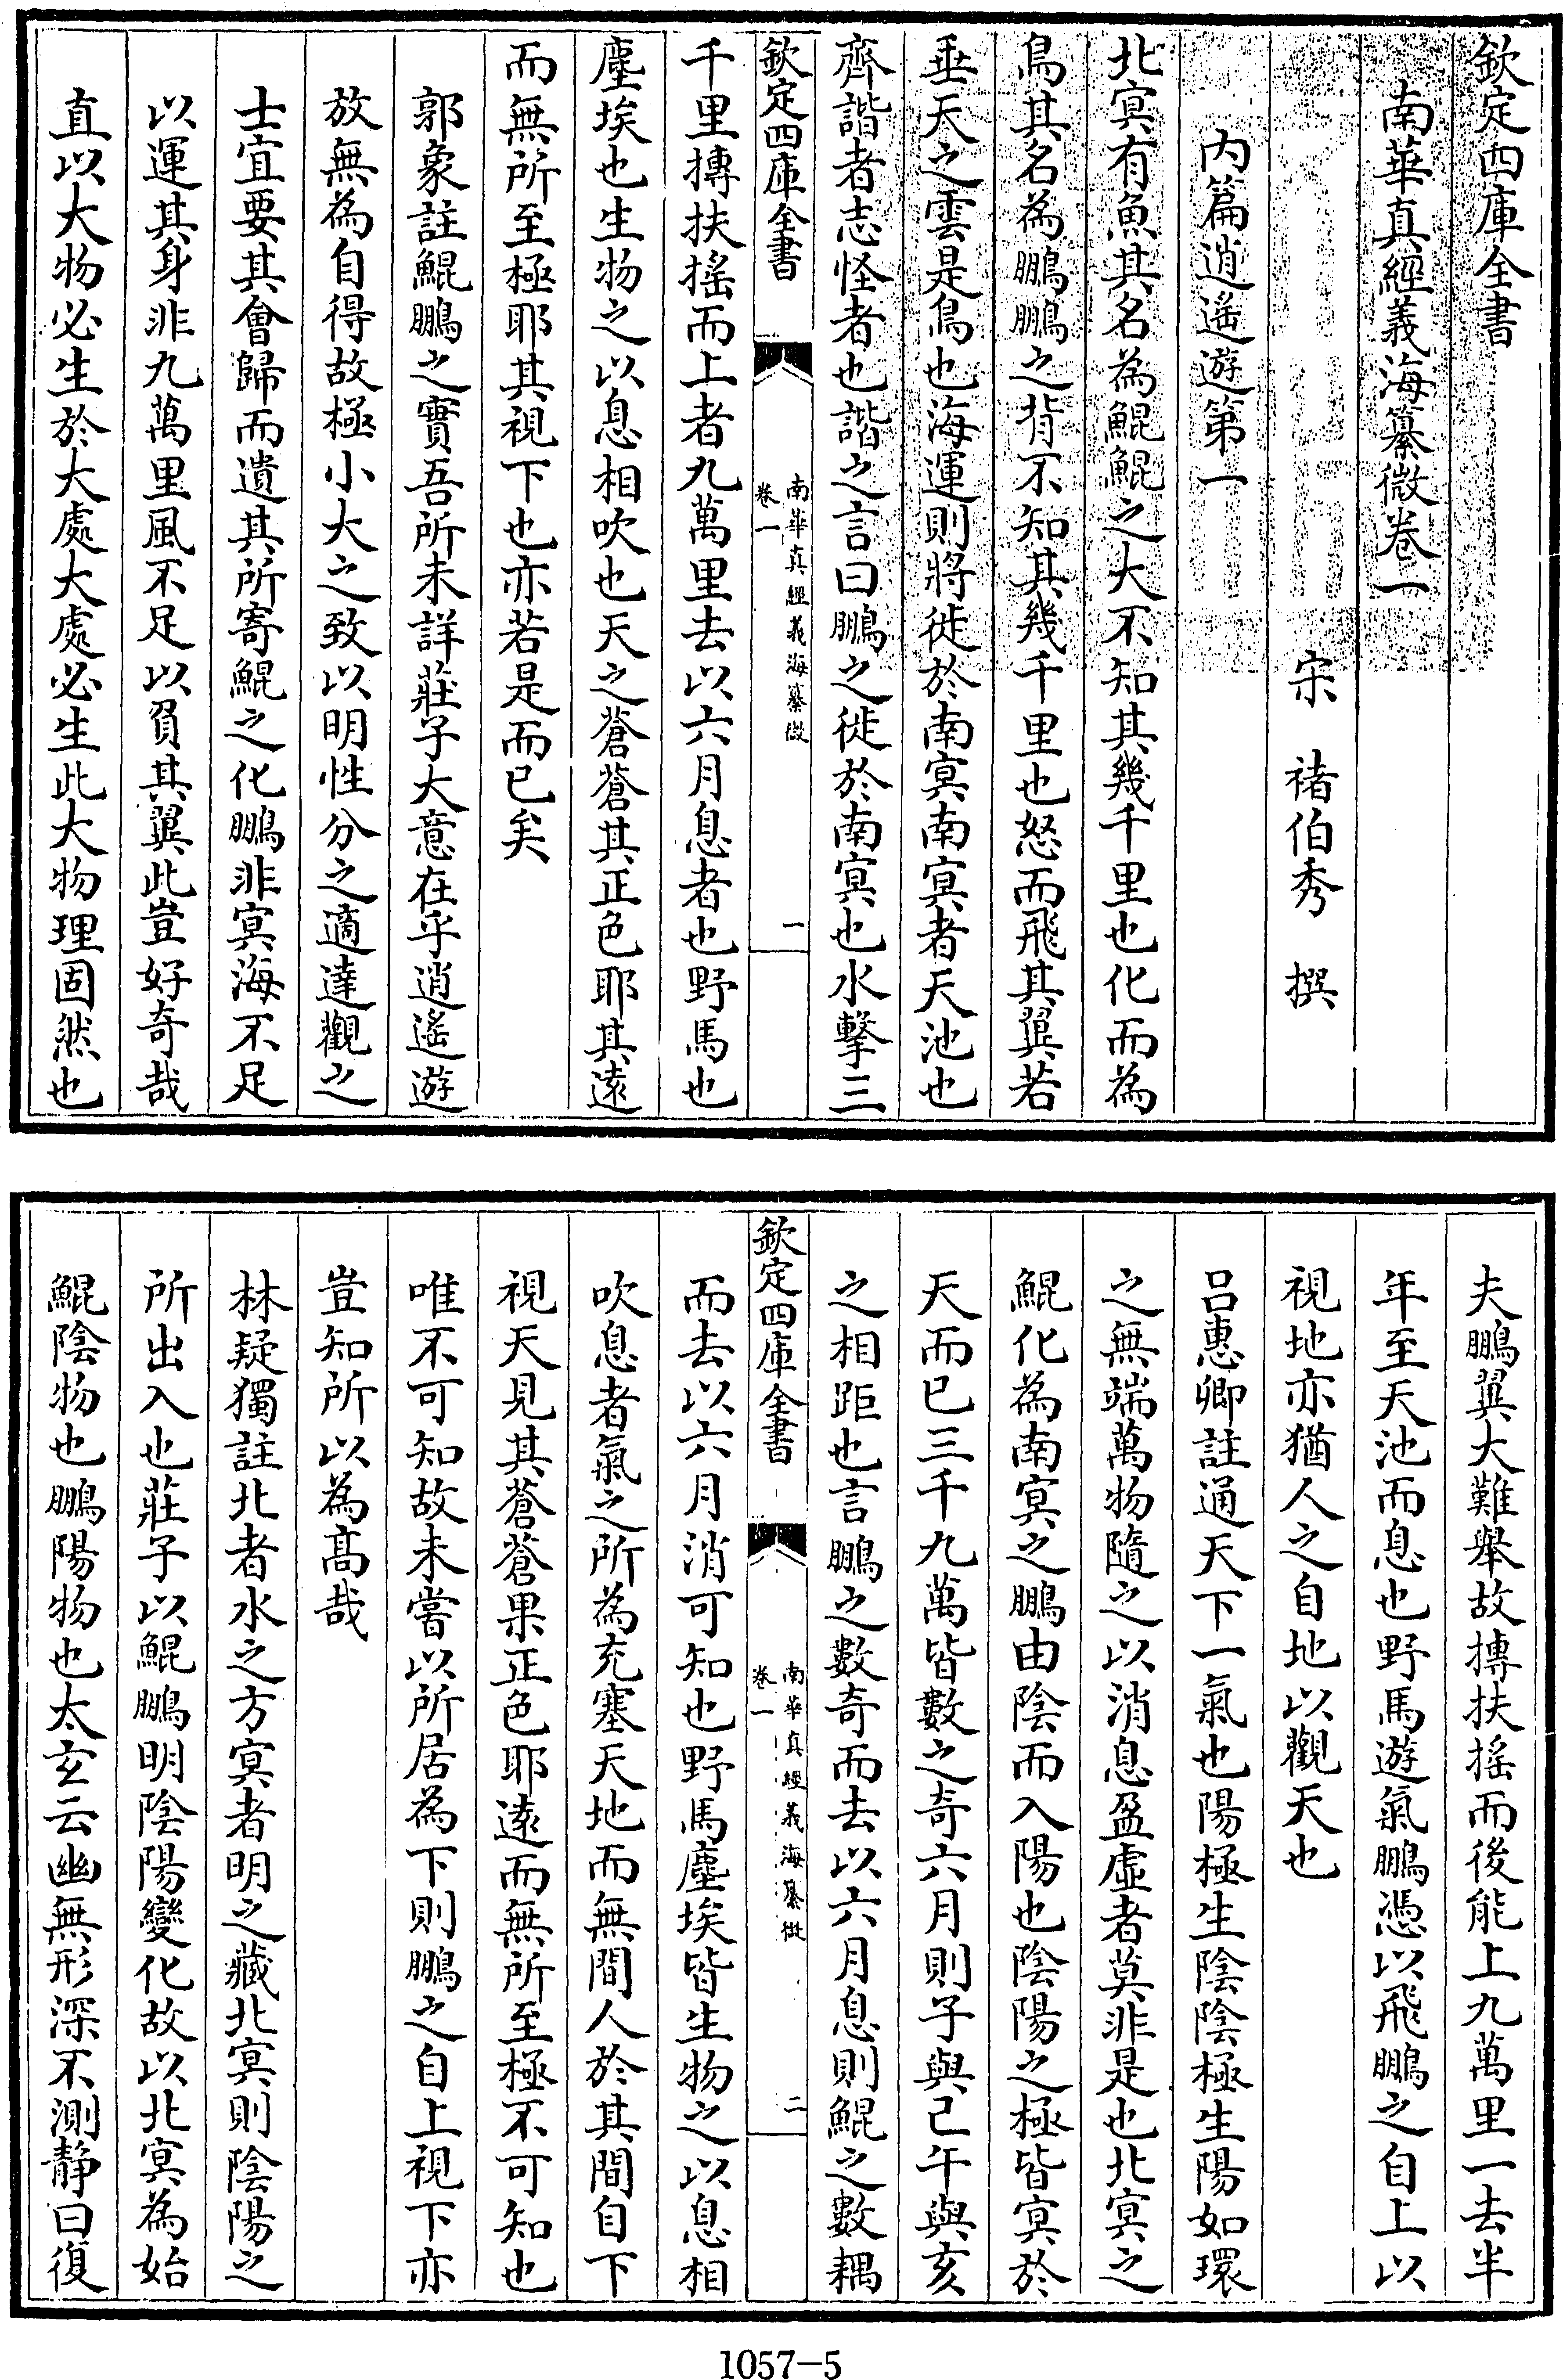 欽定四庫全書
南華真經義海纂微卷一
宋　褚伯秀　撰
內篇逍遙遊第一
北冥有魚其名為鯤鯤之大不知其幾千里也化而為
鳥其名為鵬鵬之背不知其幾千里也怒而飛其翼若
垂天之雲是鳥也海運則將徙於南冥南冥者天池也
齊諧者志怪者也諧之言曰鵬之徙於南冥也水擊三
欽定四庫全書
南華真經義海纂微
卷一
一
千里摶扶搖而上者九萬里去以六月息者也野馬也
塵埃也生物之以息相吹也天之蒼蒼其正色耶其遠
而無所至極耶其視下也亦若是而已矣
郭象註鯤鵬之實吾所未詳莊子大意在乎逍遙遊
放無為自得故極小大之致以明性分之適達觀之
士宜要其會歸而遺其所寄鯤之化鵬非冥海不足
以運其身非九萬里風不足以負其翼此豈好奇哉
直以大物必生於大處大處必生此大物理固然也
夫鵬翼大難舉故摶扶搖而後能上九萬里一去半
年至天池而息也野馬遊氣鵬憑以飛鵬之自上以
視地亦猶人之自地以觀天也
呂惠卿註通天下一氣也陽極生陰陰極生陽如環
之無端萬物隨之以消息盈虛者莫非是也北冥之
鯤化為南冥之鵬由陰而入陽也陰陽之極皆冥於
天而已三千九萬皆數之奇六月則子與巳午與亥
之相距也言鵬之數奇而去以六月息則鯤之數耦
欽定四庫全書
南華真經義海纂微
卷一
二
而去以六月消可知也野馬塵埃皆生物之以息相
吹息者氣之所為充塞天地而無間人於其間自下
視天見其蒼蒼果正色耶遠而無所至極不可知也
唯不可知故未嘗以所居為下則鵬之自上視下亦
豈知所以為高哉
林疑獨註北者水之方冥者明之藏北冥則陰陽之
所出入也莊子以鯤鵬明陰陽變化故以北冥為始
鯤陰物也鵬陽物也太玄云幽無形深不測靜曰復
1057-5